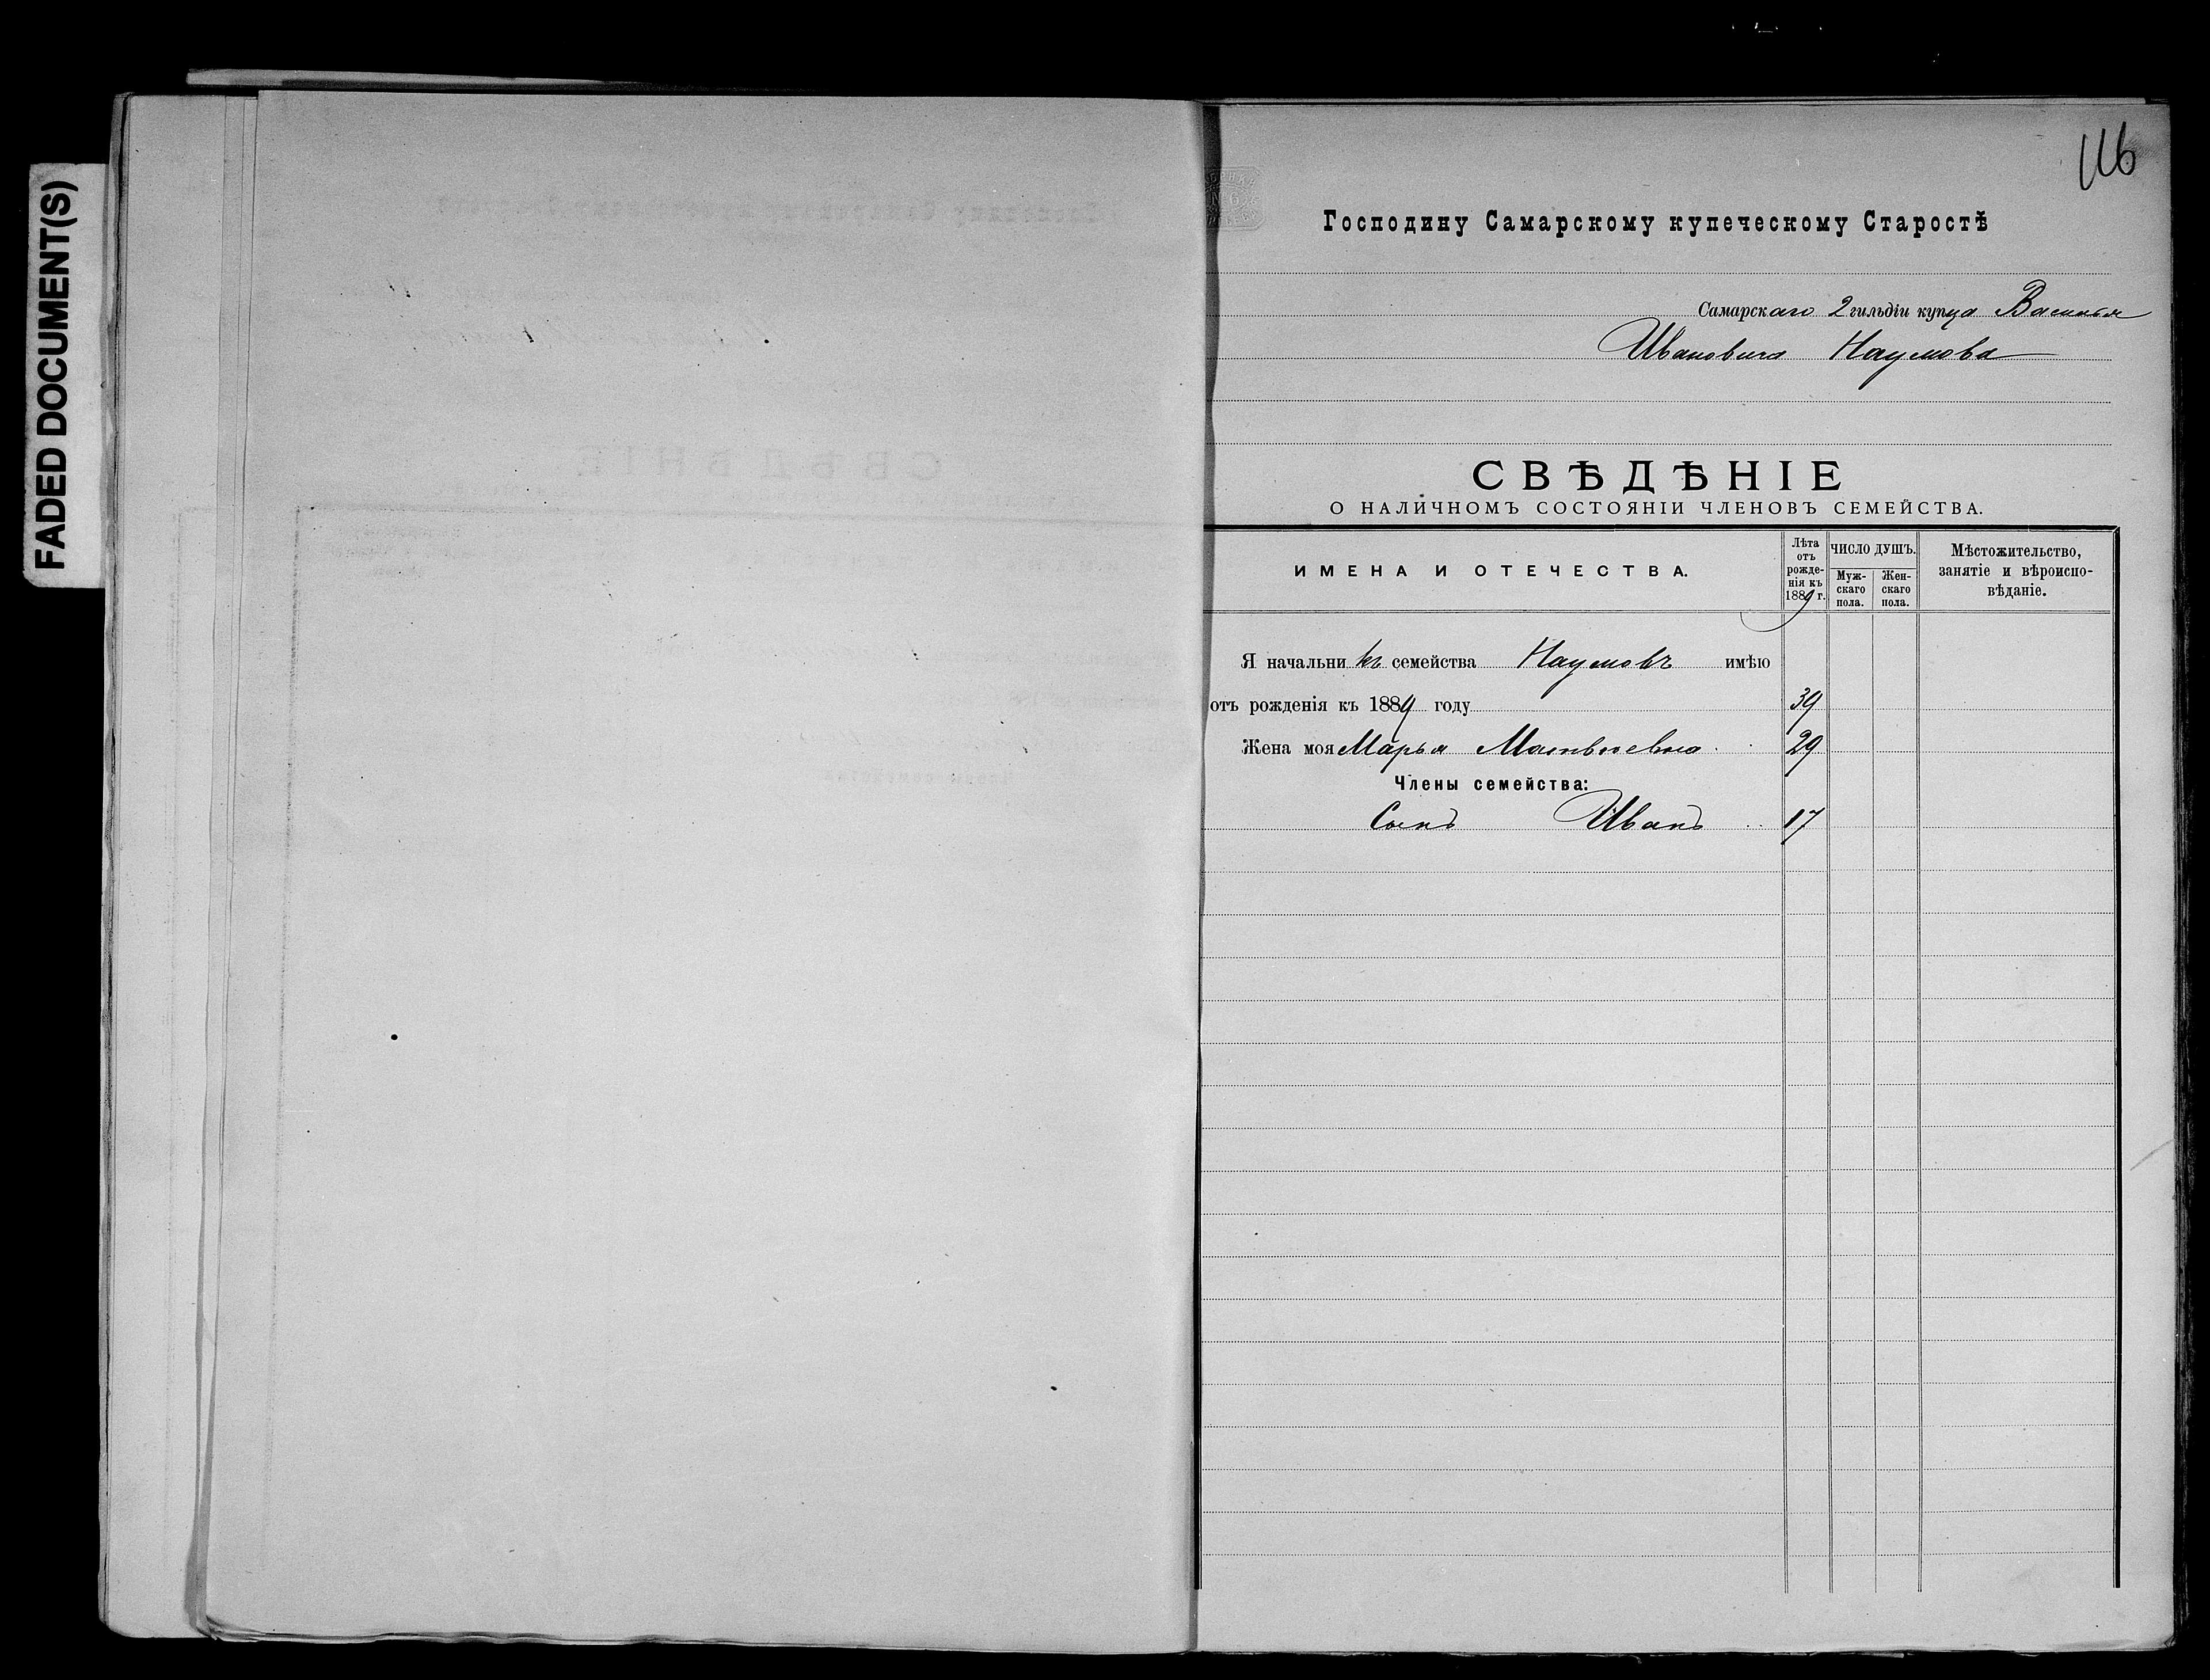 FADED DOCUMENT(S)
116
Господину Самарскому купеческому Старостѣ
Самарскаго 2 гильдіи купца Василья
Ивановича Наумова
СВѢДѢНІЕ
О НАЛИЧНОМЪ СОСТОЯНІИ ЧЛЕНОВЪ СЕМЕЙСТВА.
ИМЕНА И ОТЕЧЕСТВА.
Лѣта
отъ
рожде-
нія къ
1889 г.
ЧИСЛО ДУШЪ.
Муж-
скаго
пола.
Жен-
скаго
пола.
Мѣстожительство,
занятіе и вѣроиспо-
вѣданіе.
Я начальникъ семейства Наумовъ имѣю
отъ рожденія къ 1889 году 39
Жена моя Марья Матвѣевна 29
Члены семейства:
Сынъ Иванъ 17